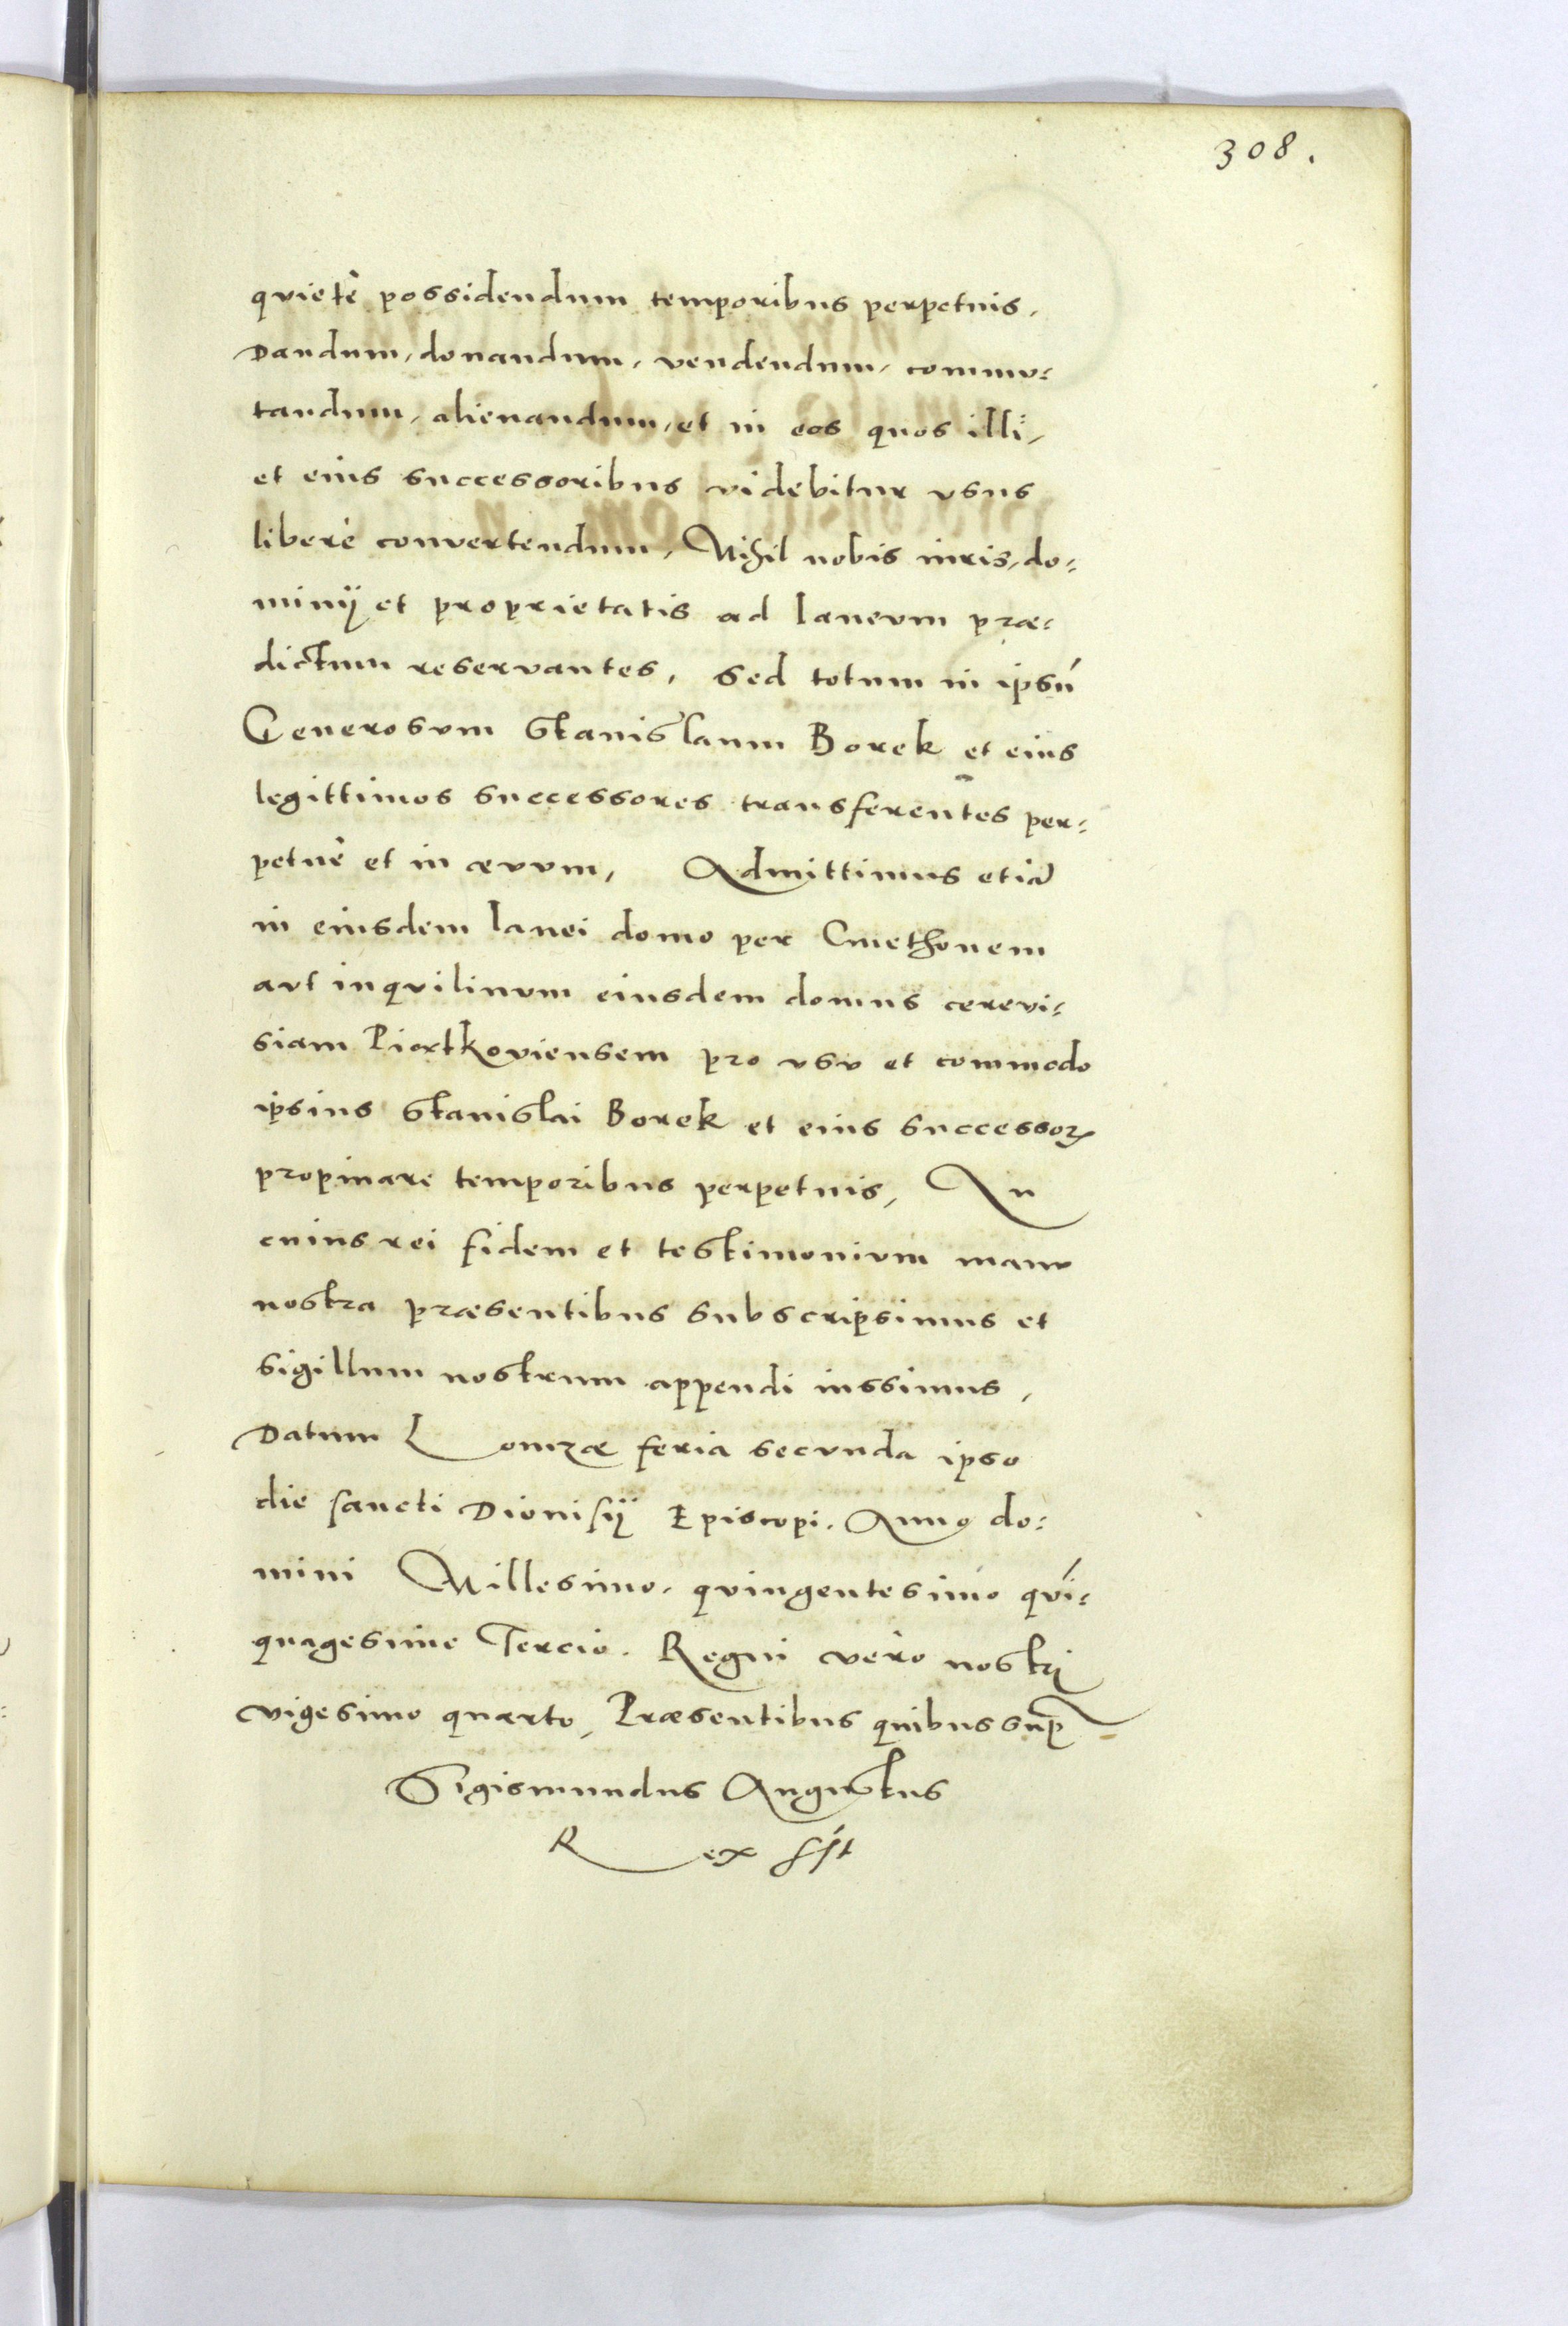 308.
qvietè possidendum temporibus perpetuis,
Dandum, donandum, vendendum, commu-
tandum, alienandum, et in eos quos illi,
et eius successoribus videbitur vsus
liberè convertendum, Nihil nobis iuris, do-
minij et proprietatis ad laneum præ-
dictum reservantes, sed totum in ipsũ
Generosum Stanislaum Borek et eius
legittimos successores transferentes per-
petuè et in ævum, Admittimus etiã
in eiusdem lanei domo per Cmethonem
aut inqvilinum eiusdem domus cerevi-
siam Piortkoviensem pro vsv et commodo
ipsius Stanislai Borek et eius successorꝝ
propinare temporibus perpetuis, In
cuius rei fidem et testimonium manu
nostra præsentibus subscripsimus et
sigillum nostrum appendi iussimus,
Datum Lomzæ feria secunda ipso
die sancti Dionisij Episcopi. Anno do-
mini Millesimo, qvingentesimo qvĩ-
quagesimo Tercio. Regni vero nostri
vigesimo quarto, Præsentibus quibus sup
Sigismundus Augustus
Rex sst